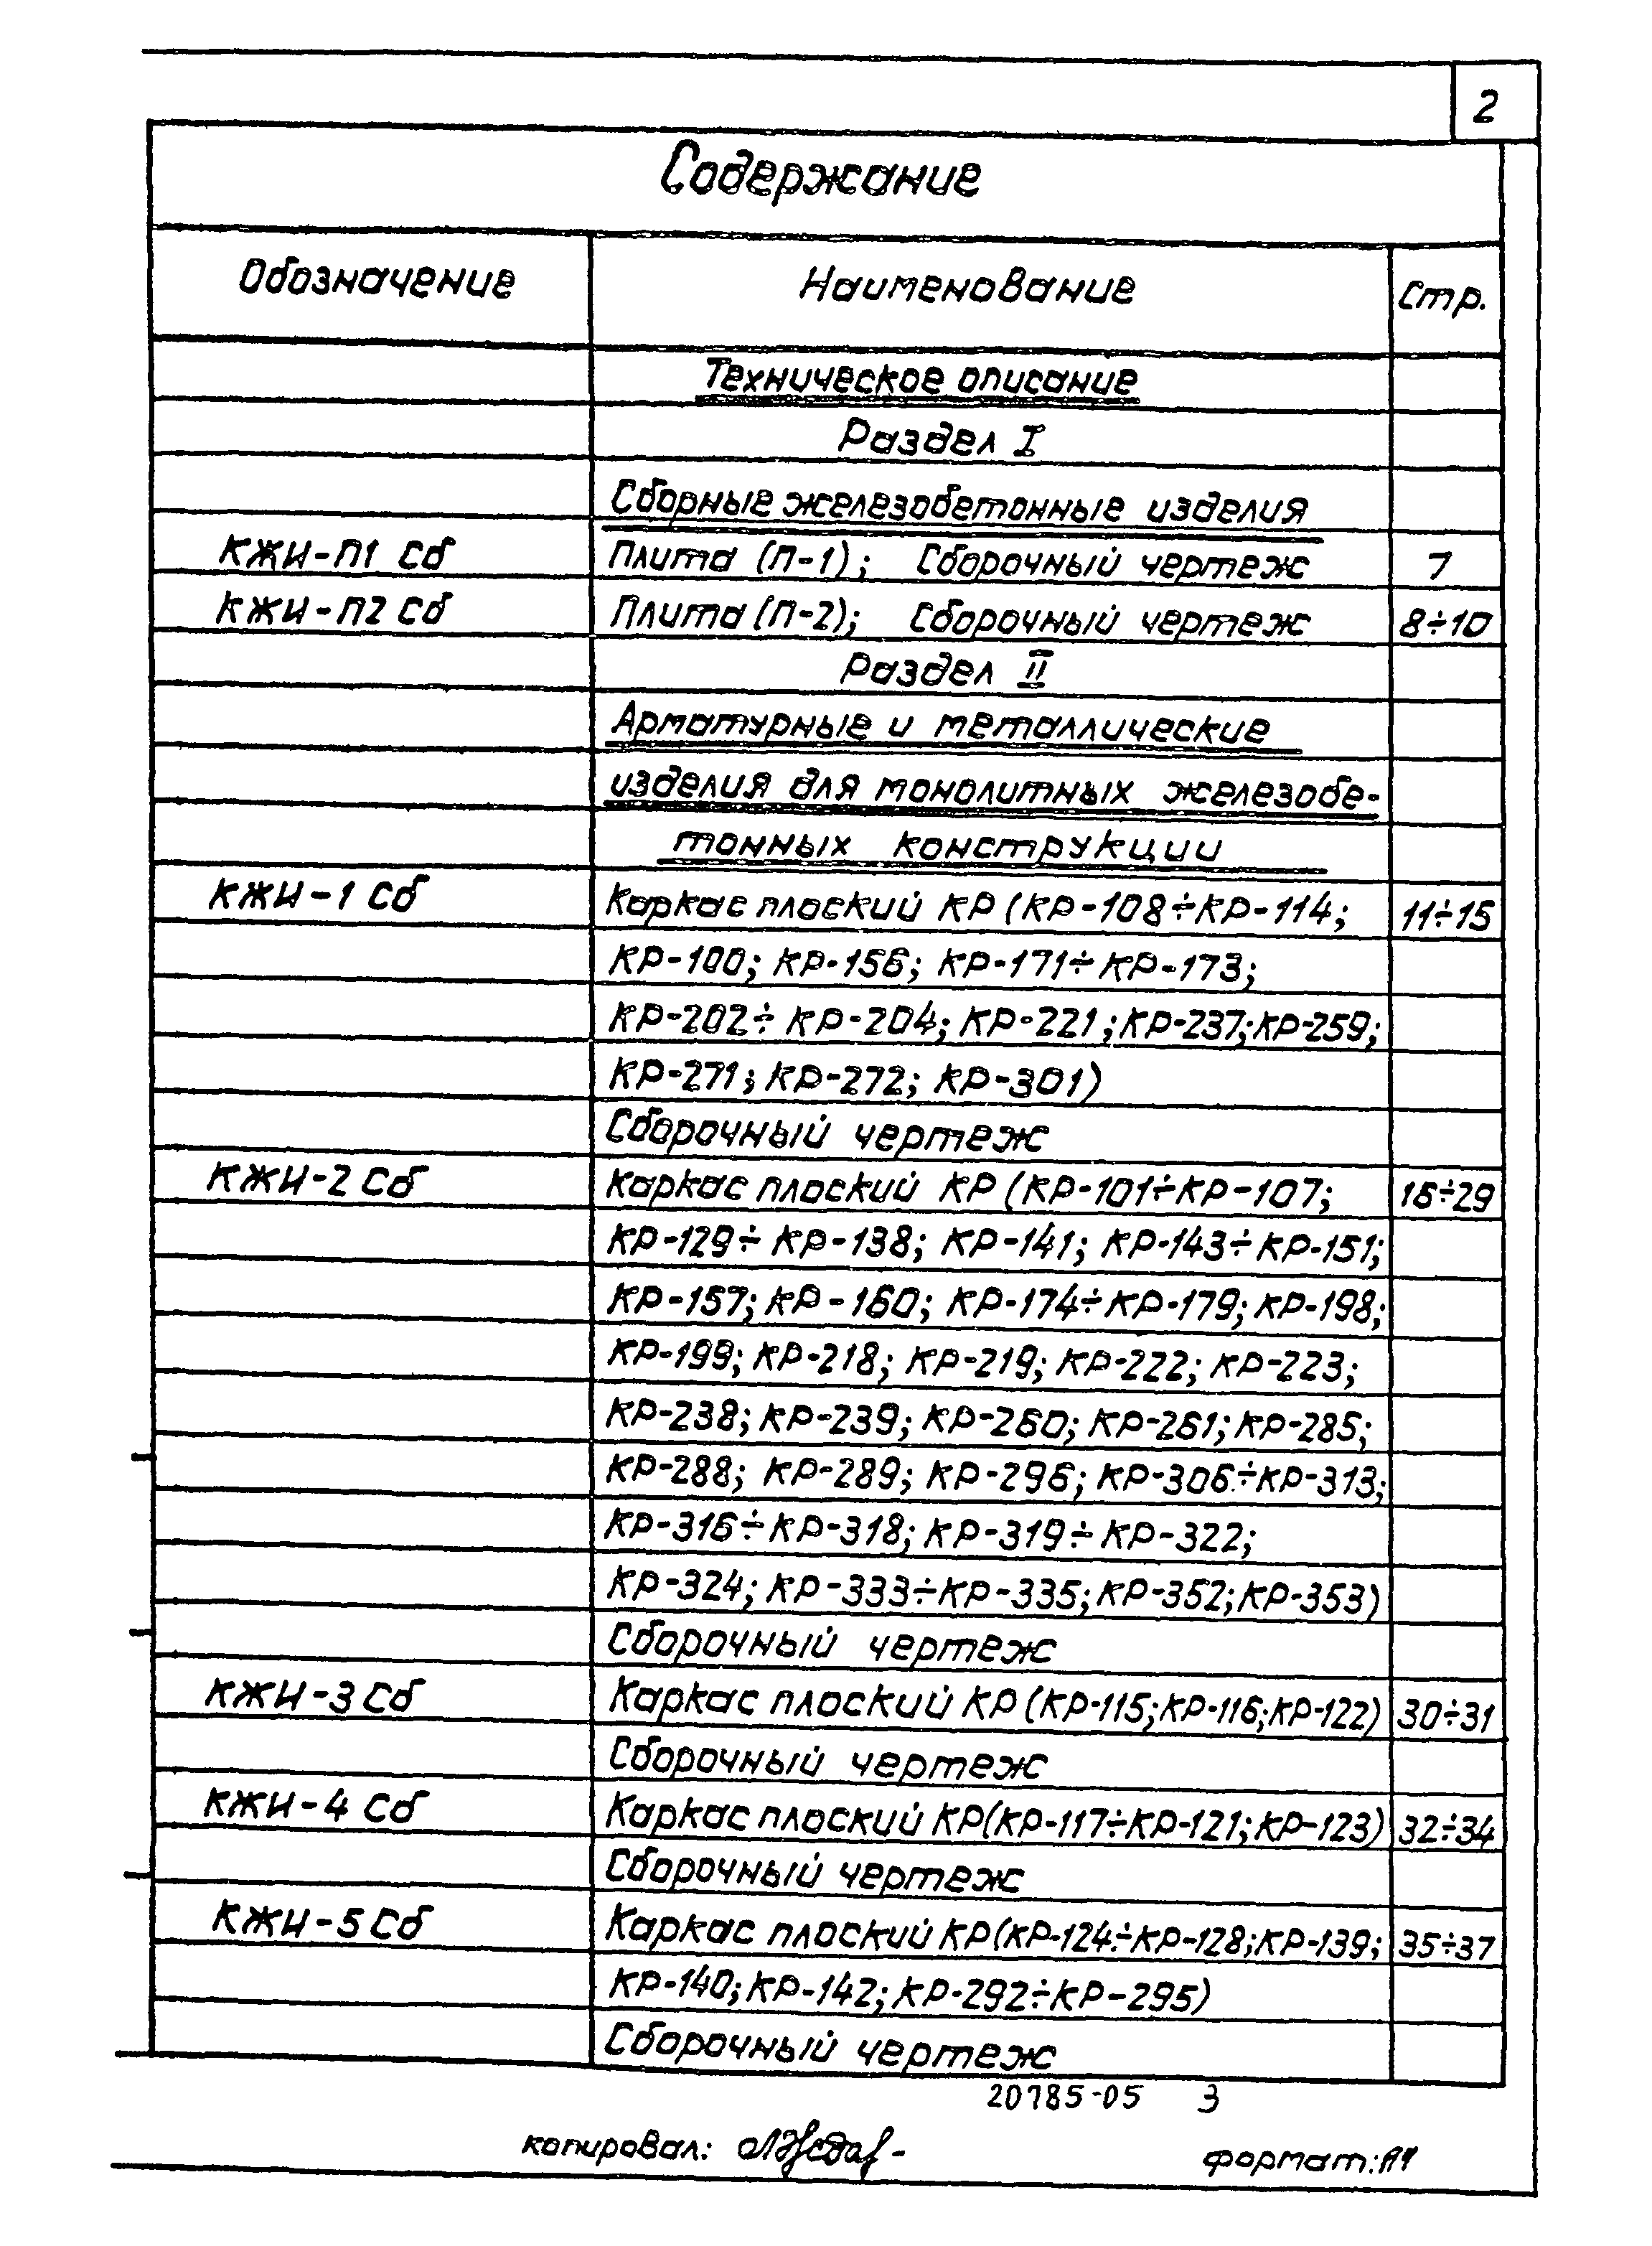 2
Содержание
Обозначение Наименование Стр.
Техническое описание
Раздел I
Сборные железобетонные изделия
КЖИ-П1 Сб Плита (П-1); Сборочный чертеж 7
КЖИ-П2 Сб Плита (П-2); Сборочный чертеж 8÷10
Раздел II
Арматурные и металлические
изделия для монолитных железобе-
тонных конструкции
КЖИ-1 Сб Каркас плоский КР (КР-108÷КР-114; 11÷15
КР-100; КР-156; КР-171÷КР-173;
КР-202÷КР-204; КР-221; КР-237; КР-259;
КР-271; КР-272; КР-301)
Сборочный чертеж
КЖИ-2 Сб Каркас плоский КР (КР-101÷КР-107; 16÷29
КР-129÷КР-138; КР-141; КР-143÷КР-151;
КР-157; КР-160; КР-174÷КР-179; КР-198;
КР-199; КР-218; КР-219; КР-222; КР-223;
КР-238; КР-239; КР-260; КР-261; КР-285;
КР-288; КР-289; КР-296; КР-306÷КР-313;
КР-316÷КР-318; КР-319÷КР-322;
КР-324; КР-333÷КР-335; КР-352; КР-353)
Сборочный чертеж
КЖИ-3 Сб Каркас плоский КР (КР-115; КР-116; КР-122) 30÷31
Сборочный чертеж
КЖИ-4 Сб Каркас плоский КР (КР-117÷КР-121; КР-123) 32÷34
Сборочный чертеж
КЖИ-5 Сб Каркас плоский КР (КР-124÷КР-128; КР-139; 35÷37
КР-140; КР-142; КР-292÷КР-295)
Сборочный чертеж
20785-05 3
копировал: формат: А4